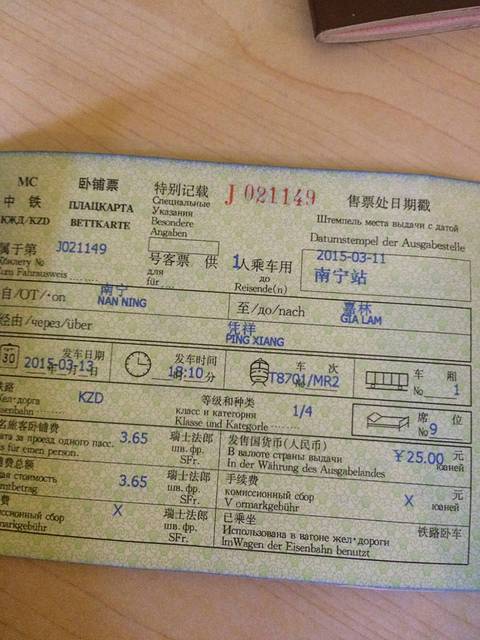 MC 卧铺票 特别记载 J 021149 售票处日期戳
中 铁 ПЛАЦКАРТА Специальные Указания Штемпель места выдачи с датой
КЖД/KZD BETTKARTE Besondere Angaben Datumstempel der Ausgabestelle
属于第 J021149 号客票 供 1人乘车用 2015-03-11
для до 南宁站
für Reisende(n)
自/ОТ/·on 南宁 至/до/nach 嘉林
NAN NING GIA LAM
经由/через/über 凭祥
PING XIANG
30 发车日期 发车时间 车 次 车 厢
2015-03-13 18:10 分 T8701/MR2 No 1
铁路 KZD 等级和种类
класс и категория 1/4 席 位
Klasse und Kategorie No 9
3.65 瑞士法郎 发售国货币(人民币)
за проезд одного пасс. шв. фр. В валюте страны выдачи ￥25.00 元
für einen person. SFr. In der Währung des Ausgabelandes юаней
费总额 3.65 瑞士法郎 手续费 元
стоимость шв. фр. комиссионный сбор X юаней
SFr. Vormarkgebühr
费 X 瑞士法郎 已乘坐 铁路卧车
сбор шв. фр. Использована в вагоне жел·дороги
SFr. ImWagen der Eisenbahn benutzt